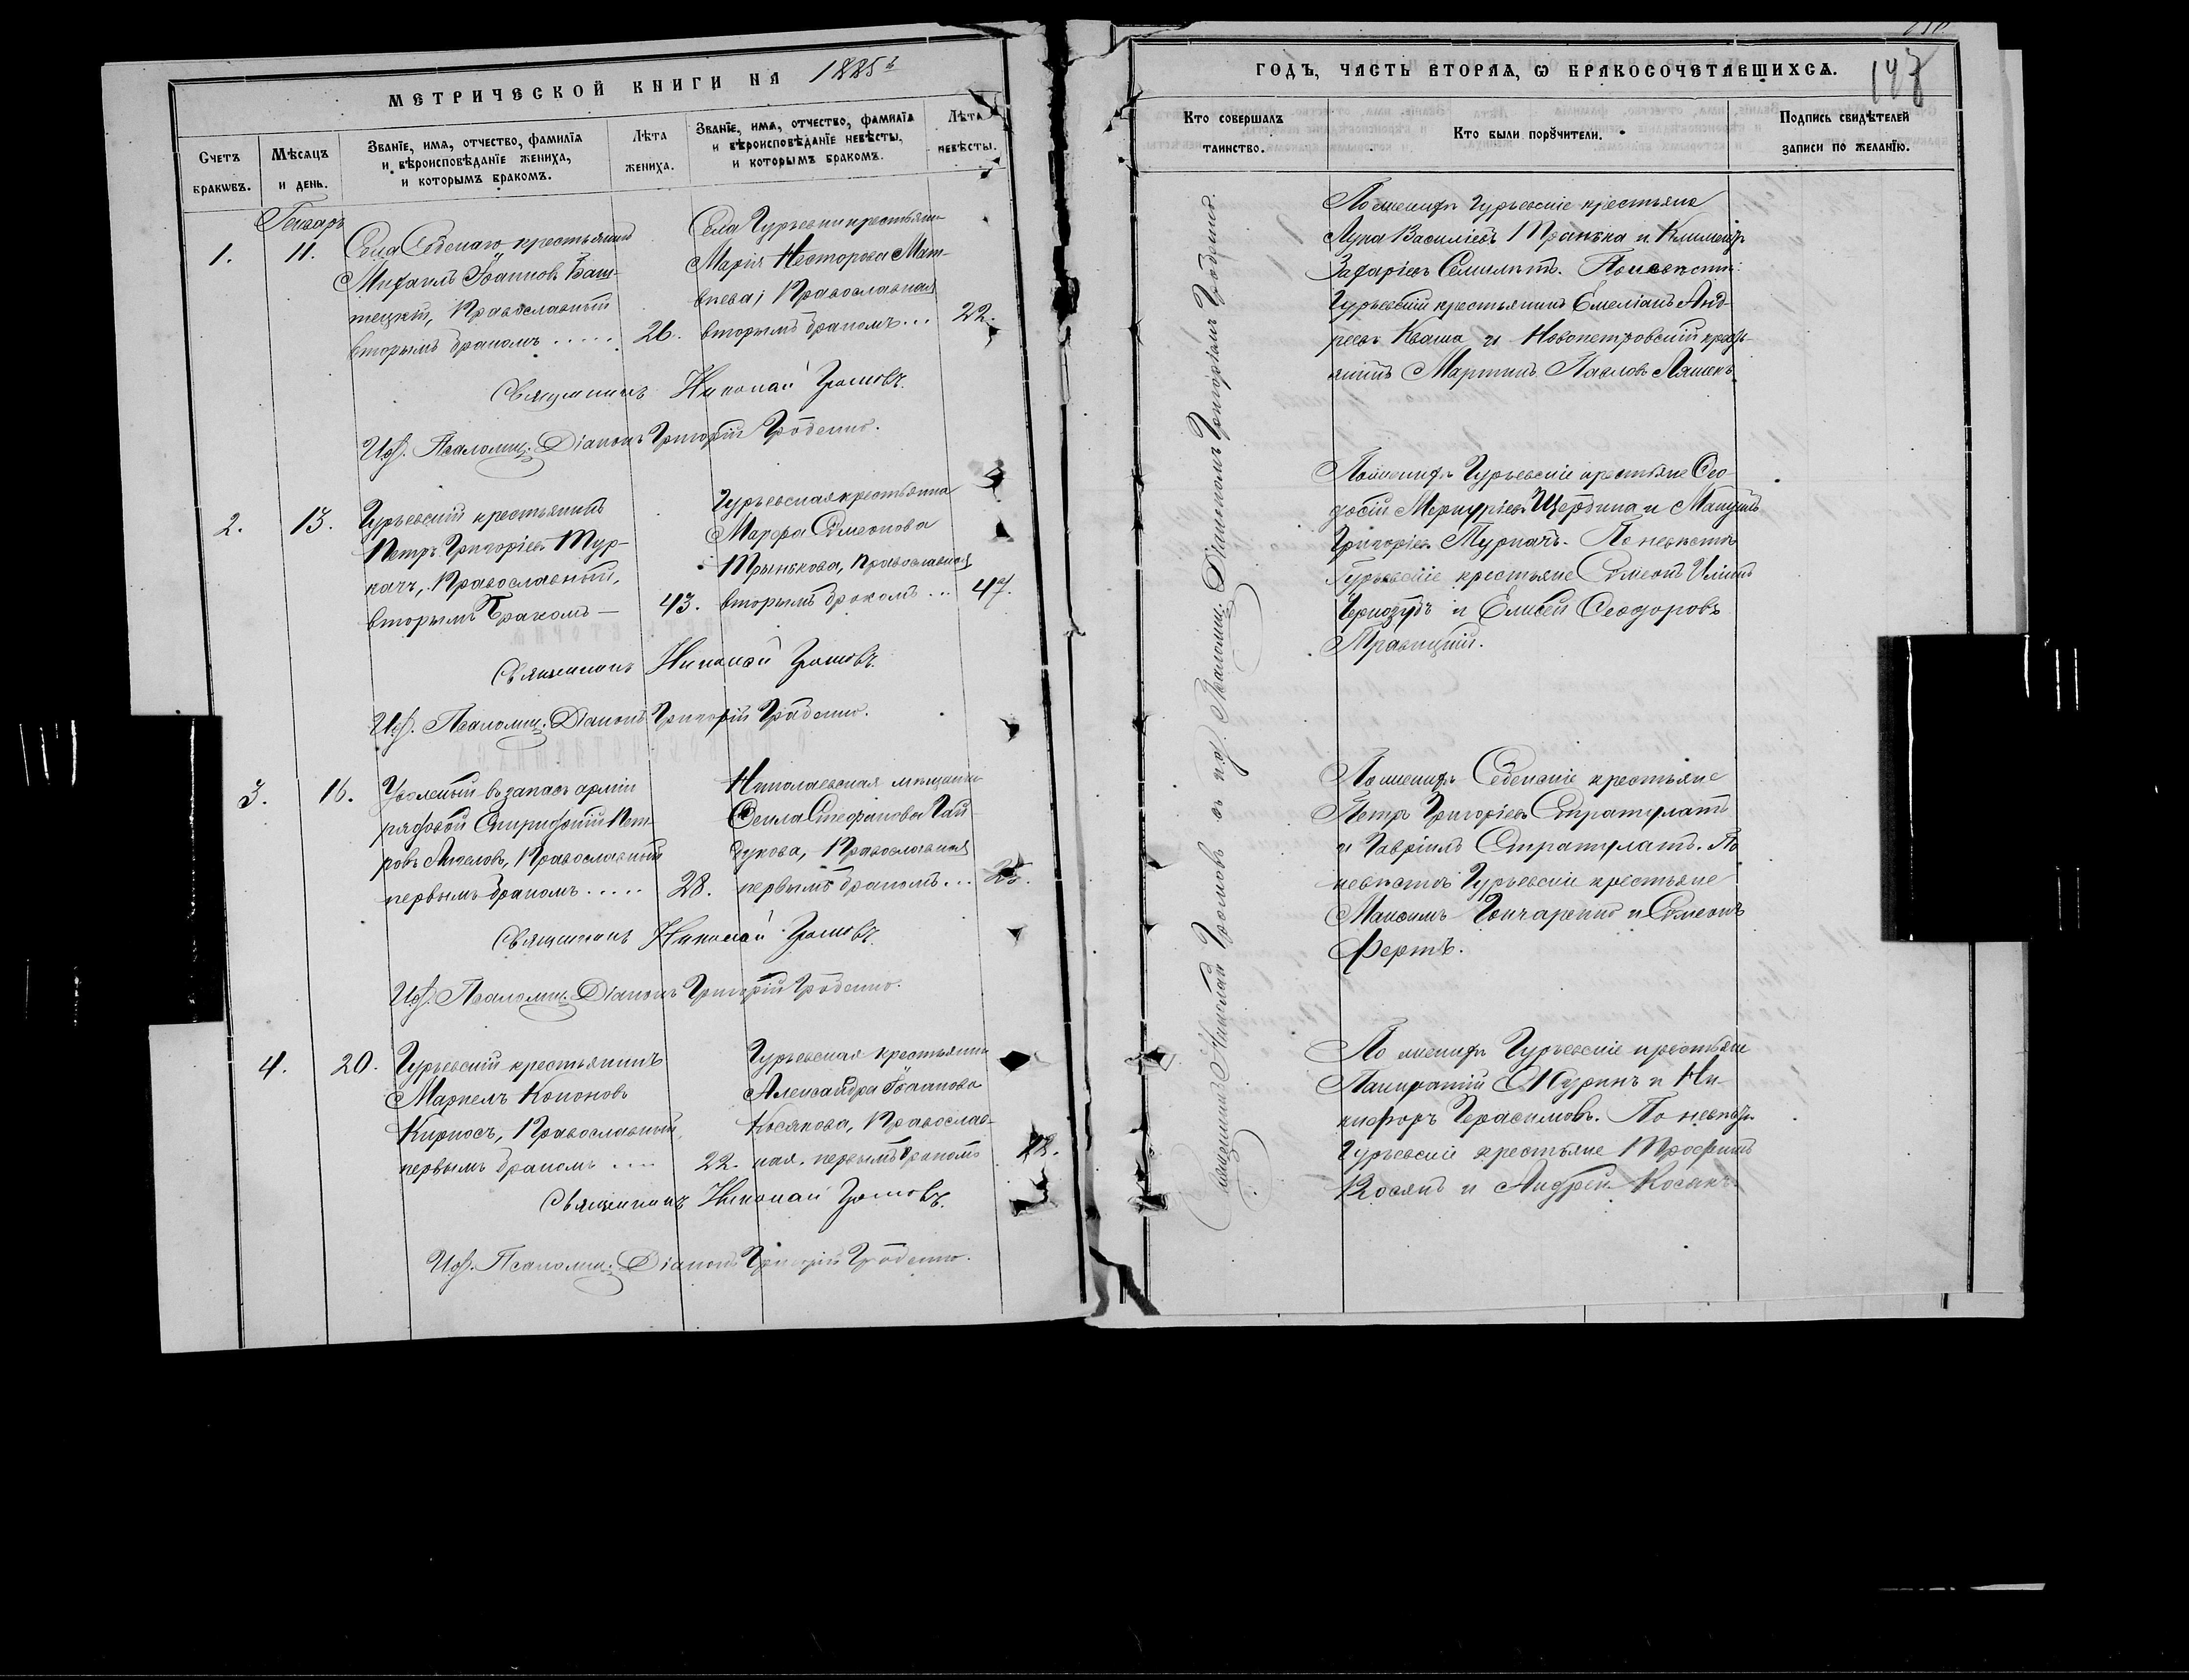 МЕТРИЧЕСКОЙ КНИГИ НА 1885й
Счетъ браковъ.
Мѣсяцъ и день.
Званїе, имя, отчество, фамилїа и вѣроисповѣданїе жениха, и которымъ бракомъ.
Лѣта жениха.
Званїе, имя, отчество, фамилїа и вѣроисповѣданїе невѣсты, и которымъ бракомъ.
Лѣта невѣсты.
Генварь
1.
11.
Села Себенаго крестьянинъ
Михаилъ Іоанновъ Баш-
тецкій, Православный
вторымъ бракомъ .....
26.
Села Гурьевки крестьян-
Марія Несторова Мат-
вѣева, Православная
вторымъ бракомъ...
22.
Священникъ Николай Громовъ.
Исп. Псаломщ. Діаконъ Григорій Гробенко.
2.
13.
Гурьевскій крестьянинъ
Петръ Григоріевъ Тур-
качъ, Православный,
вторымъ бракомъ —
43.
Гурьевская крестьянка
Марфа Симеонова
Трынькова, Православная
вторымъ бракомъ...
47.
Священникъ Николай Громовъ.
Исп. Псаломщ. Діаконъ Григорій Гробенко.
3.
16.
Уволеный въ запасъ арміи
рядовой Спиридонъ Пет-
ровъ Ангеловъ, Православный
первымъ бракомъ .....
28.
Николаевская мѣщанка
Фекла Стефанова Гай
дукова, Православная
первымъ бракомъ...
Священникъ Николай Громовъ.
Исп. Псаломщ. Діаконъ Григорій Гробенко.
4.
20.
Гурьевскій крестьянинъ
Маркелъ Кононовъ
Кирносъ, Православный
первымъ бракомъ ....
22.
Гурьевская крестьянка
Александра Іоаннова
Косякова, Православ-
ная, первымъ бракомъ
18.
Священникъ Николай Громовъ.
Исп. Псаломщ. Діаконъ Григорій Гробенко.
ГОДЪ, ЧАСТЬ ВТОРАЯ, Ѡ БРАКОСОЧЕТАВШИХСЯ.
147
Кто совершалъ таинство.
Кто были порꙋчители.
Подпись свидѣтелей записи по желанїю.
Священникъ Николай Громовъ съ исп. Псаломщ. Діакономъ Григоріемъ Гробенко.
По женихѣ Гурьевскіе крестьяне
Лука Василіевъ Транька и Климентъ
Захаріевъ Селилитъ. По невѣстѣ
Гурьевскій крестьянинъ Емеліанъ Анд-
реевъ Кваша и Новопетровскій крест-
янинъ Мартинъ Павловъ Ляшекъ
По женихѣ Гурьевскіе крестьяне Ѳео-
досій Меркуріевъ Щербина и Мануилъ
Григоріевъ Туркачъ. По невѣстѣ
Гурьевскіе крестьяне Симеонъ Иліинъ
Чернозубъ и Елисей Ѳеодоровъ
Правицкій.
По женихѣ Себенскіе крестьяне
Петръ Григоріевъ Стратулатъ
и Гавріилъ Стратулатъ. По
невѣстѣ Гурьевскіе крестьяне
Максимъ Гончаренко и Симеонъ
Фертъ.
По женихѣ Гурьевскіе крестьяне
Панкратій Журинъ и Ни-
кифоръ Герасимовъ. По невѣстѣ
Гурьевскіе крестьяне Трофимъ
Косякъ и Андрей Косякъ.